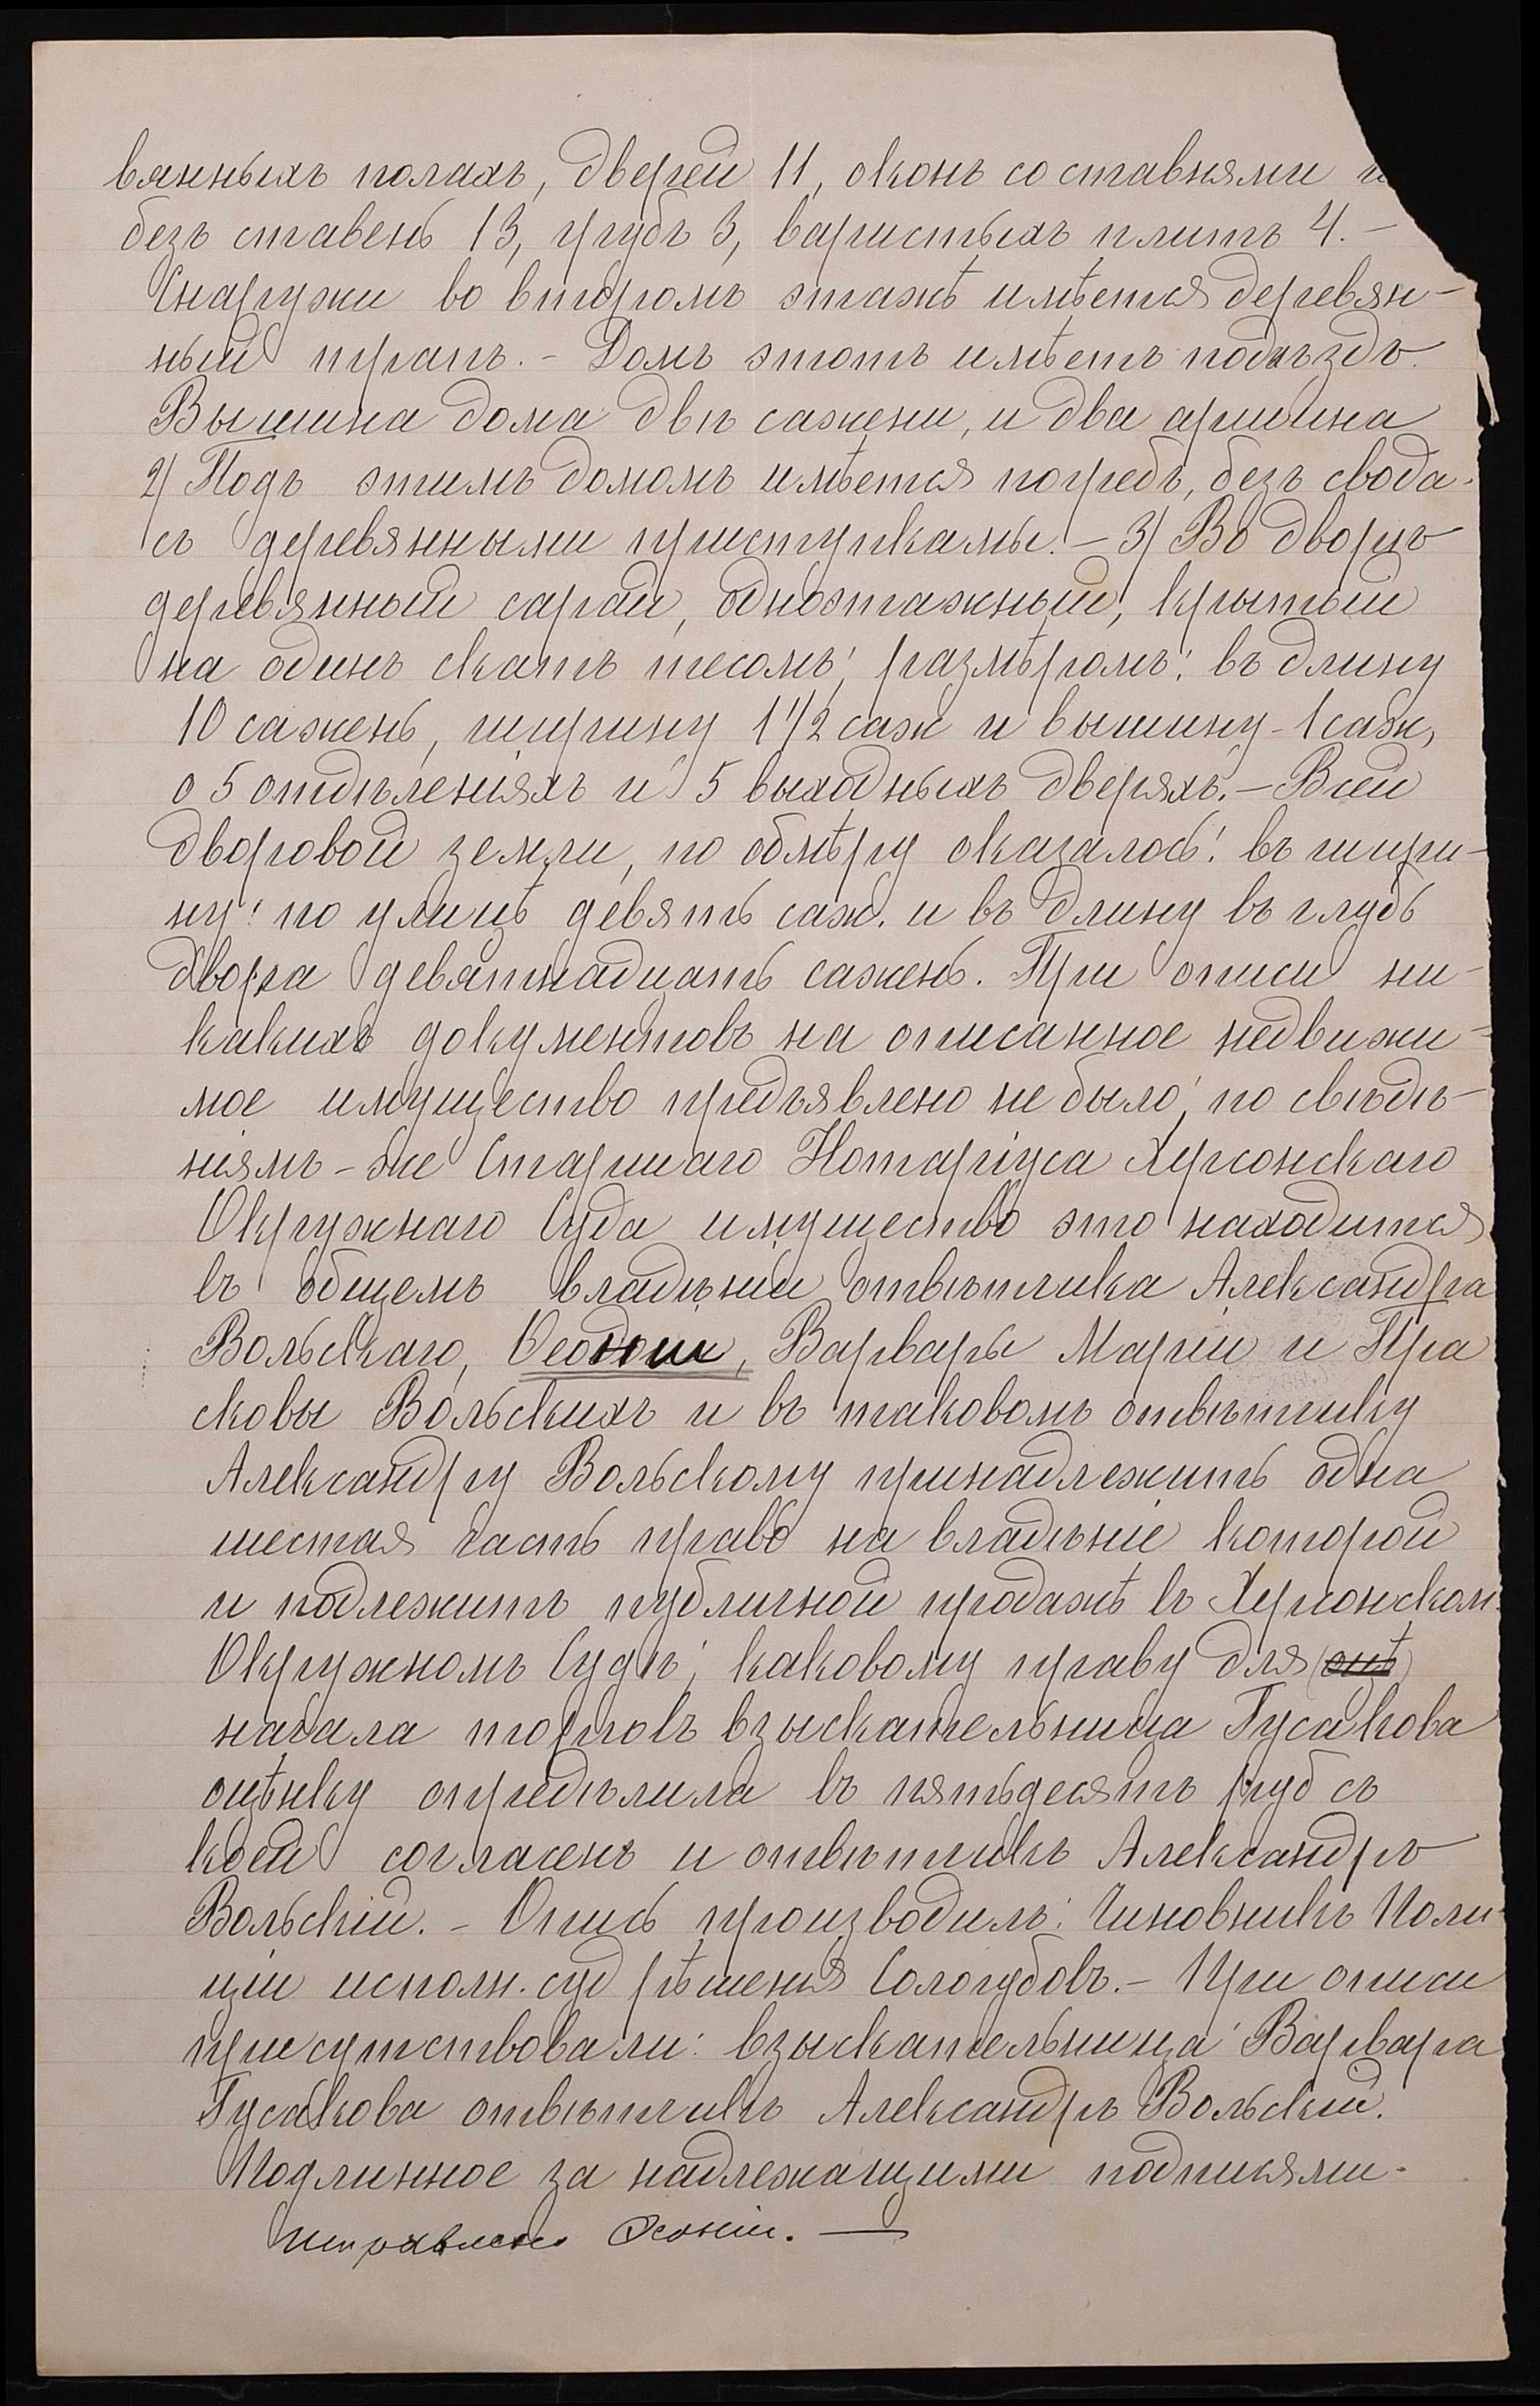 вянныхъ полахъ, дверей 11, оконъ со ставнями и
безъ ставень 13, грубъ 3, варистыхъ плитъ 4. -
Снаружи во второмъ этажѣ имѣется деревян-
ный трапъ. - Домъ этотъ имѣетъ подъѣздъ.
Вышина дома двѣ сажени, и два аршина
2) Подъ этимъ домомъ имѣется погребъ, безъ свода
съ деревянными приступками. - 3) Во дворѣ
деревянный сарай, одноэтажный, крытый
на одинъ скатъ тесомъ; размѣромъ: въ длину
10 сажень, ширину 1 1/2 саж и вышину - 1 саж,
о 5 отдѣленіяхъ и 5 выходныхъ дверяхъ. - Всей
дворовой земли, по обмѣру оказалось: въ шири-
ну: по улицѣ девять саж. и въ длину въ глубь
двора девятнадцать сажень. При описи ни-
какихъ документовъ на описанное недвижи-
мое имущество предъявлено не было, по свѣдѣ-
ніямъ - же Старшаго Нотаріуса Херсонскаго
Окружнаго Суда имущество это находится
въ общемъ владѣніи отвѣтчика Александра
Вольскаго, Ѳеодосіи, Варвары Маріи и Пра
сковьи Вольскихъ и въ таковомъ отвѣтчику
Александру Вольскому принадлежитъ одна
шестая часть право на владѣніе которой
и подлежитъ публичной продажѣ въ Херсонском
Окружномъ Судѣ; каковому праву для (оцѣ)
начала торговъ взыскательница Гусакова
оцѣнку опредѣлила въ пятьдесятъ руб съ
коей согласенъ и отвѣтчикъ Александръ
Вольскій. - Опись производилъ: Чиновникъ Поли-
ціи исполн. суд рѣшенія Сологубовъ. - При описи
присутствовали: взыскательница Варвара
Гусакова отвѣтчикъ Александръ Вольскій.
Подлинное за надлежащими подписями.
Исправлено